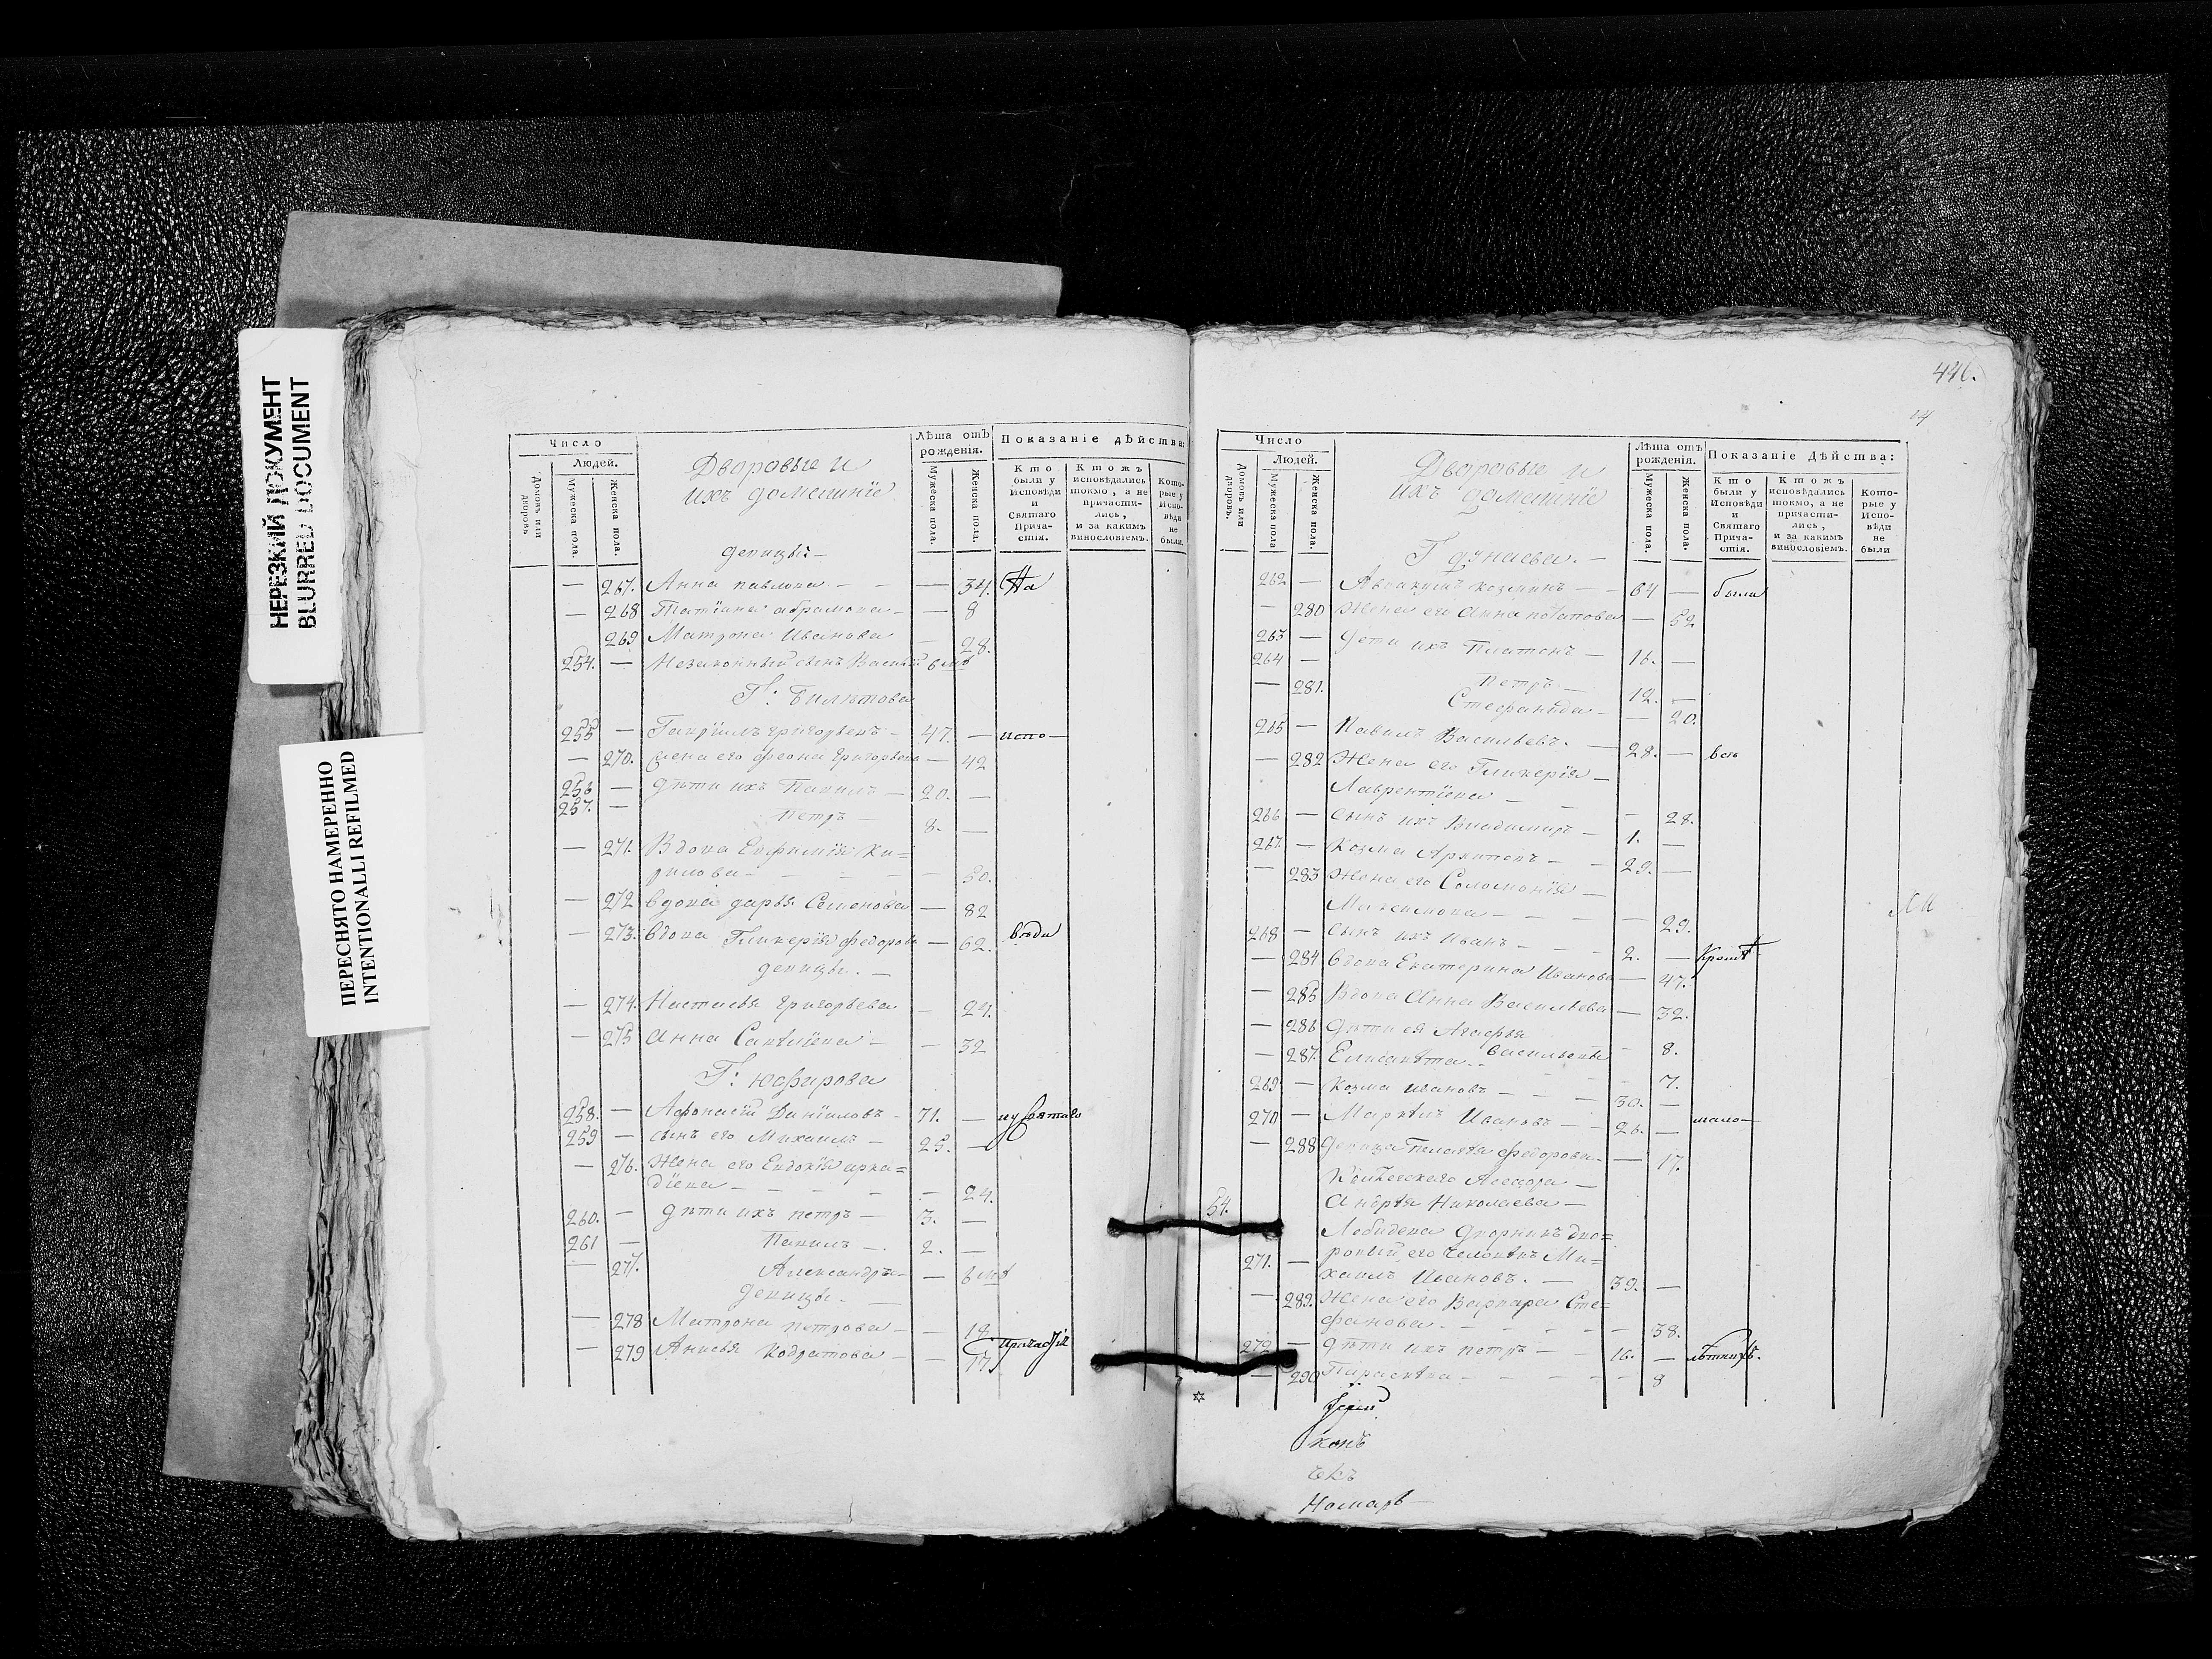 НЕРЕЗКИЙ ДОКУМЕНТ
BLURRED DOCUMENT
ПЕРЕСНЯТО НАМЕРЕННО
INTENTIONALLI REFILMED
Число
Людей.
Домовъ или дворовъ
Мужеска пола.
Женска пола.
Дворовые и
ихъ домешніе
Лѣта отъ рожденія.
Мужеска пола.
Женска пола.
Показаніе дѣйства:
Кто были у Исповѣди и Святаго Причастія.
Ктожъ исповѣдались токмо, а не причастились, и за какимъ винословіемъ.
Которые у Исповѣди не были.
девицы—
— 267. Анна павлова — — 34. На
— 268 Татіана абрамова — — 8
269 Матрона Иванова — 28.
254. — Незаконный сынъ Василій 6 лѣ
Г: Билѣтова
255 — Гавріилъ григорьевъ — 47. — испо—
— 270. жена его феона григорьева — 42
256 — дѣти ихъ Павилъ — 20. —
257. — петръ — 8. —
— 271. Вдова Евфимія Ки=
рилова — — — 50.
— 272 вдова дарья Семенова — 82
— 273. вдова Гликерія федорова — 62. вѣди
девицы. —
— 274. Настасья григорьева — 29.
— 275 Анна Савелиева — — 32
Г: юсфирова
258. — Афонасій Даніиловъ — 71. — и у святаго
259 — сынъ его Михаилъ — 25. —
— 276. Жена его Евдокія арка=
діева — — — 24.
260. — дѣти ихъ петръ — 3. —
261 — Павилъ — 2. —
— 277. Александра — — 6 лѣ
девицы. —
— 278 Матрона петрова — — 18
— 279 Анисья Кодратова — — 17. Причастія
446.
Число
Людей.
Домовъ или дворовъ.
Мужеска пола
Женска пола.
Дворовые и
ихъ домешніе
Лѣта отъ рожденія.
Мужеска пола.
Женска пола.
Показаніе Дѣйства:
Кто были у Исповѣди и Святаго Причастія.
Ктожъ исповѣдались токмо, а не причастились, и за какимъ винословіемъ.
Которые у Исповѣди не были
Г дунаева. —
262 — Авакумъ козминъ — — 64 — были
— 280 Жена его Анна потапова — 52
263 — дети ихъ Платонъ — 16. —
264 — петръ — 12. —
— 281. Стефанида — — 20.
265 — Павилъ Васильевъ. — 28. — всѣ
— 282 Жена его Гликерія —
Лаврентіева — — 28.
266 — сынъ ихъ Владимиръ — 1. —
267 — Козма Архиповъ — — 29. —
— 283 Жена его Соломонія —
Максимова — — — 29.
268 — сынъ ихъ Иванъ — — 2. — Кромѣ
— 284 вдова Екатерина Иванова — 47.
— 285 Вдова Анна Васильева — 32.
— 286 дѣти ея Агафья
Васильевы — 8.
— 287. Елисавета — — 7.
269 — Козма Ивановъ — — 30. —
270 — Маркелъ Ивановъ — — 26. — мало—
— 288 девица Пелагея федорова — — 17.
Колежскаго Асесора —
54. Андрѣя Николаева —
Лебидева дворникъ дво=
ровый его человѣкъ Ми=
271. — хаилъ Ивановъ. — 39. —
— 289. Жена его Варвара Сте=
фанова. — — — 38.
272 — дѣти ихъ петръ — — 16. — лѣтнихъ.
— 290 Параскева — — — 8
Іерей
конъ
чкъ
Номарь